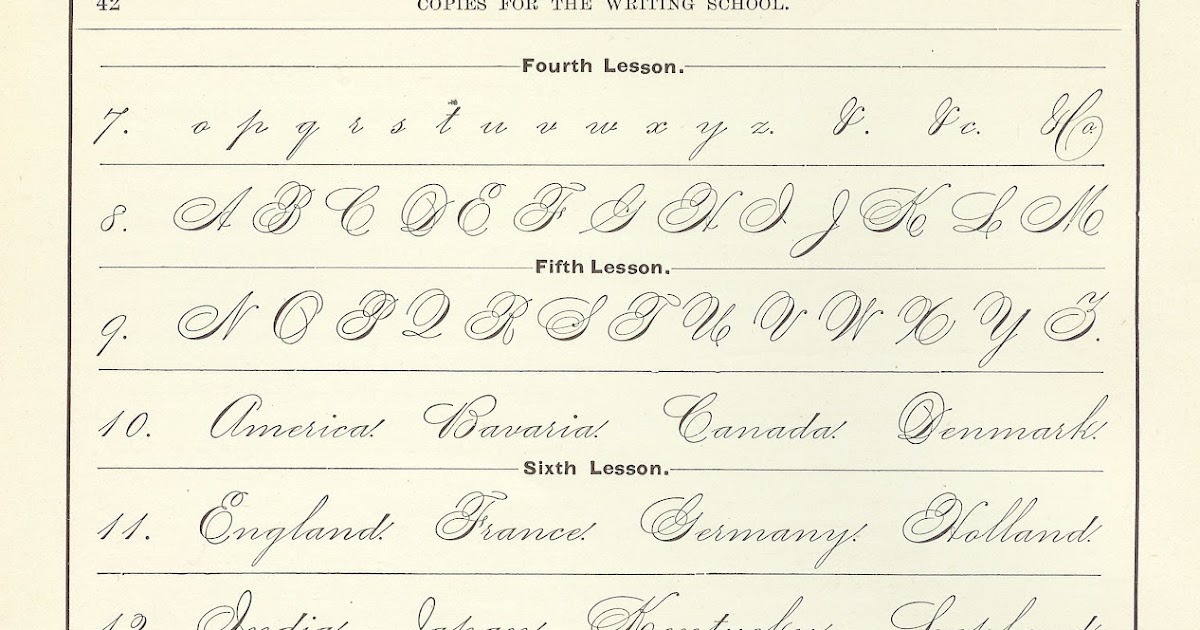 42 COPIES FOR THE WRITING SCHOOL.
Fourth Lesson.
7. o p q r s t u v w x y z. &. &c. & Co
8. A B C D E F G H I J K L M
Fifth Lesson.
9. N O P Q R S T U V W X Y Z.
10. America. Bavaria. Canada. Denmark.
Sixth Lesson.
11. England. France. Germany. Holland.
12. India Japan Kentucky